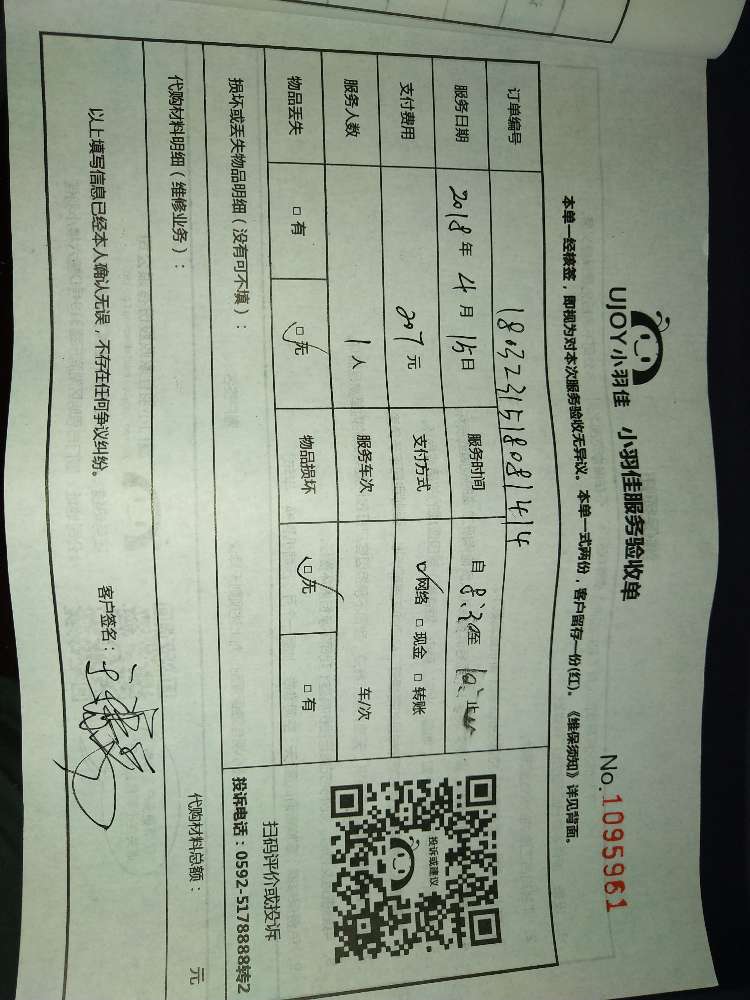 UJOY小羽佳 小羽佳服务验收单
No.1095961
本单一经核签，即视为对本次服务验收无异议。本单一式两份，客户留存一份(红)。《维保须知》详见背面。
订单编号 1803231518081414
服务日期 2018年4月15日 服务时间 自8:30至
支付费用 207元 支付方式 网络 □现金 □转账
服务人数 1人 服务车次 车/次
物品丢失 □有 □无 物品损坏 □无 □有
投诉或建议
损坏或丢失物品明细（没有可不填）：
扫码评价或投诉
投诉电话：0592-5178888转2
代购材料明细（维修业务）：
代购材料总额： 元
以上填写信息已经本人确认无误，不存在任何争议纠纷。
客户签名：